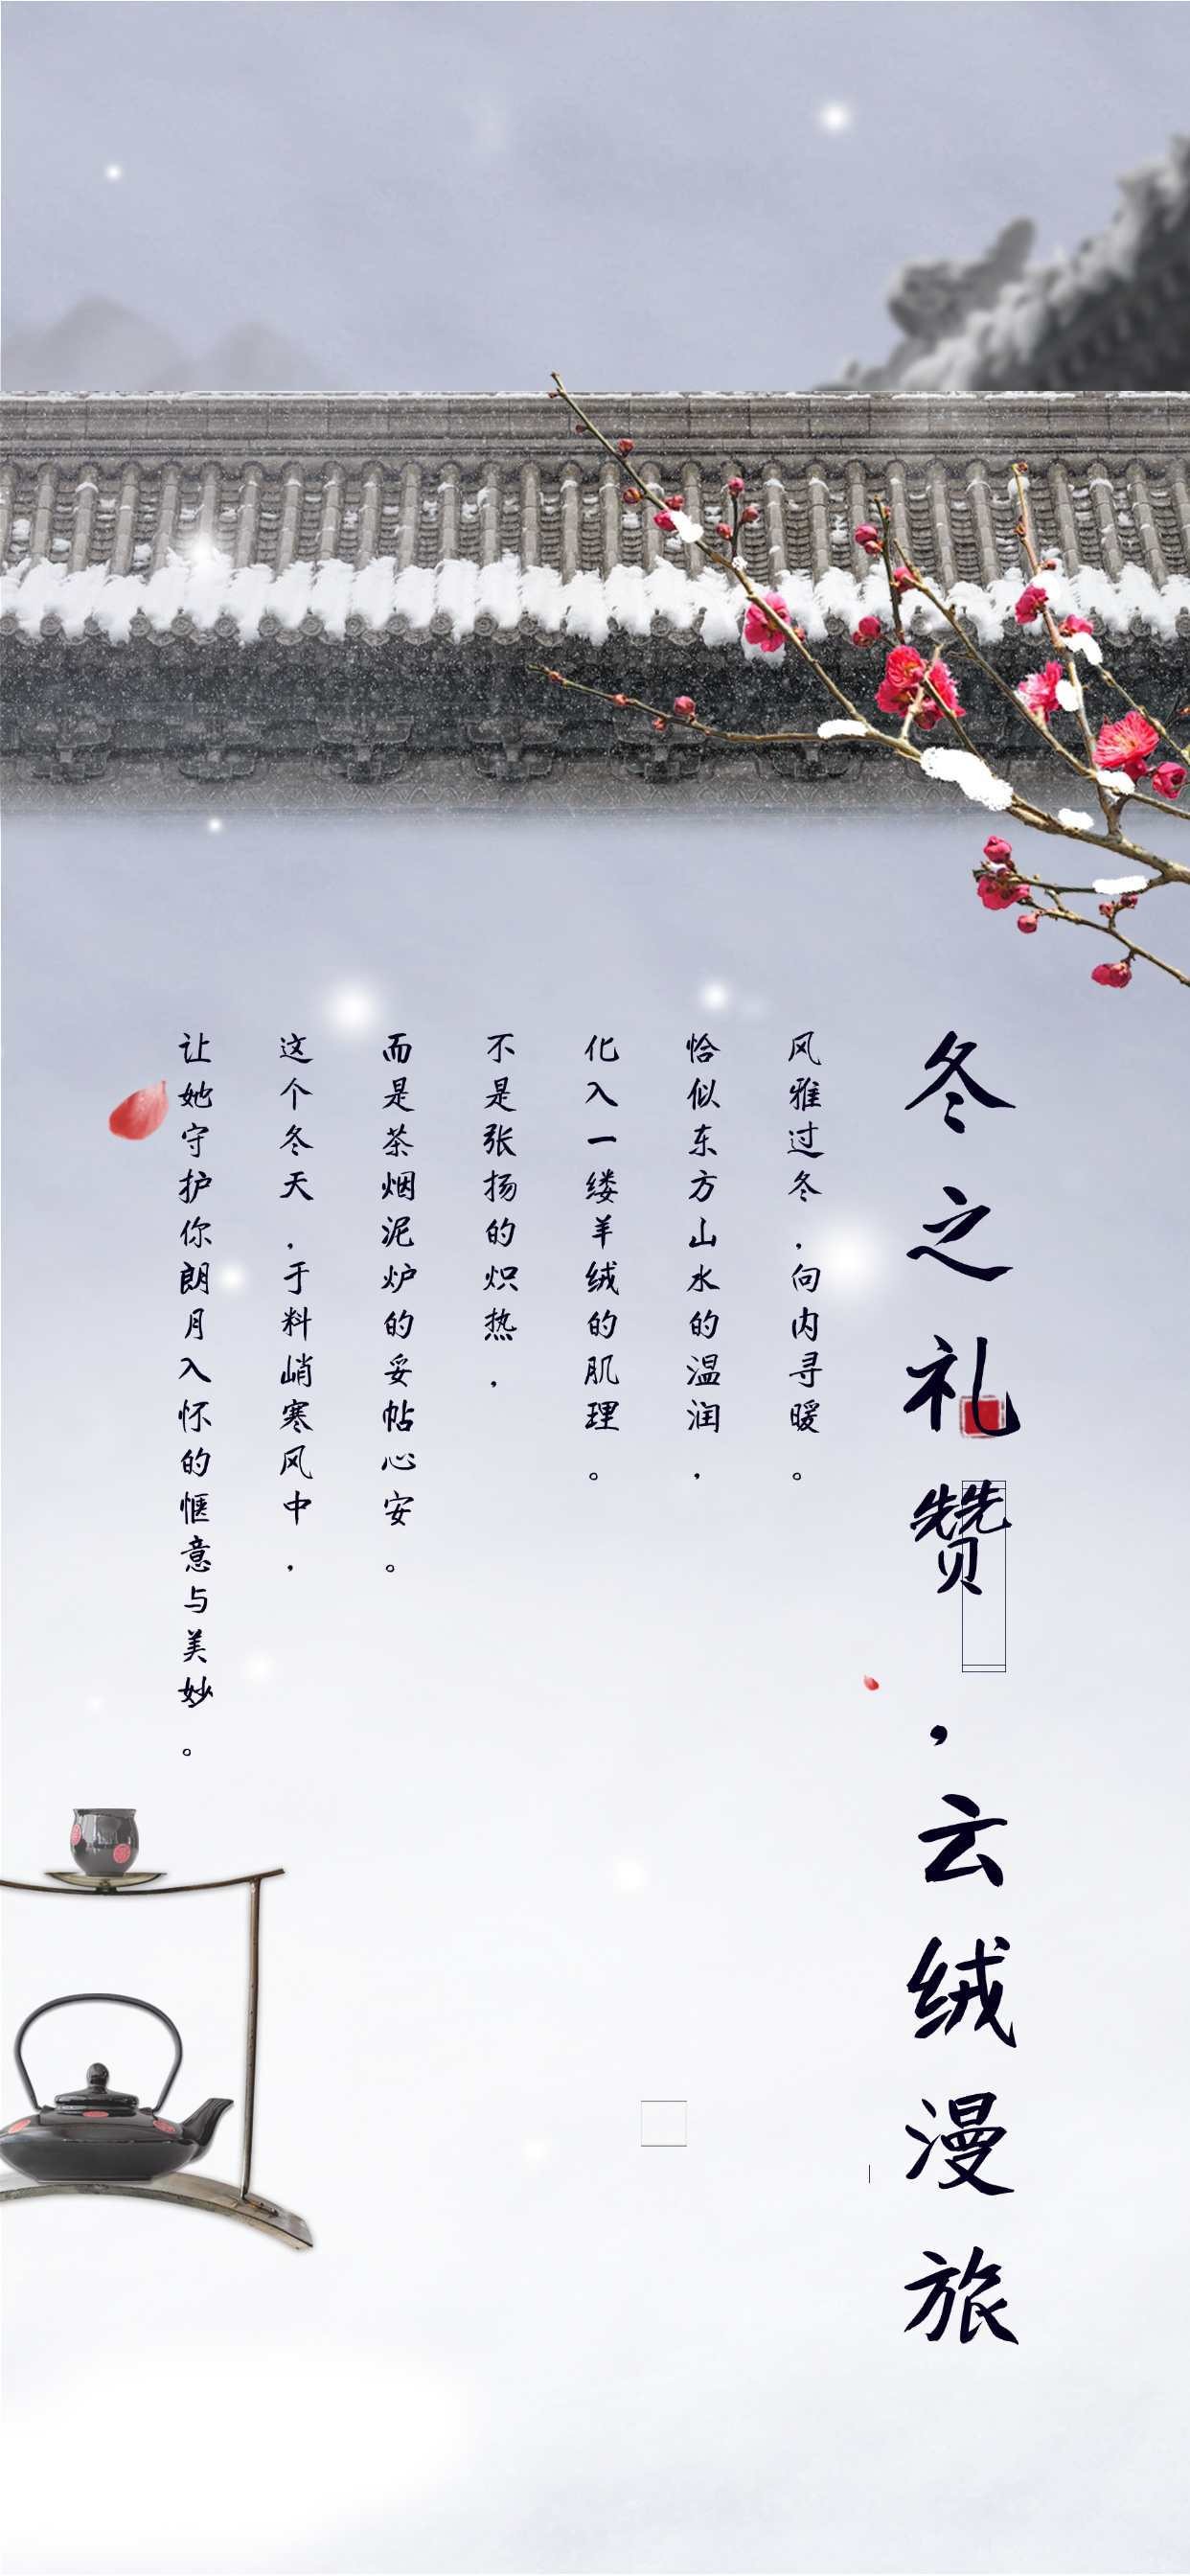 冬之礼赞,云绒漫旅
风雅过冬,向内寻暖。
恰似东方山水的温润,
化入一缕羊绒的肌理。
不是张扬的炽热,
而是茶烟泥炉的妥帖心安。
这个冬天,于料峭寒风中,
让她守护你朗月入怀的惬意与美妙。